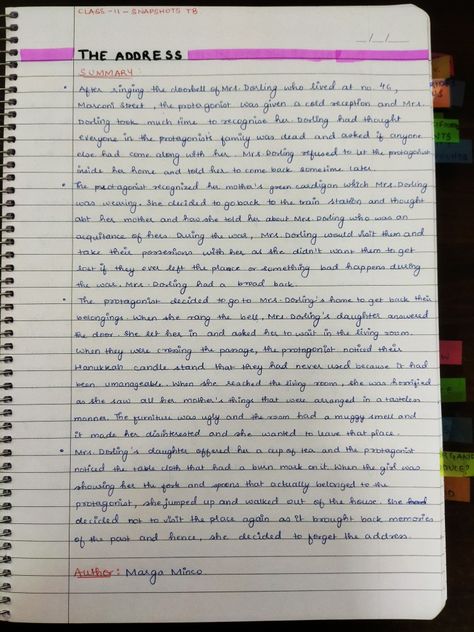 CLASS-11-SNAPSHOTS TB
__/__/__
THE ADDRESS
SUMMARY:
• After ringing the doorbell of Mrs. Dorling who lived at no. 46,
Marconi Street, the protagonist was given a cold reception and Mrs.
Dorling took much time to recognise her. Dorling had thought
everyone in the protagonist's family was dead and asked if anyone
else had come along with her. Mrs. Dorling refused to let the protagonist
inside her home and told her to come back sometime later.
• The protagonist recognized her mother's green cardigan which Mrs. Dorling
was wearing. She decided to go back to the train station and thought
abt her mother and how she told her about Mrs. Dorling who was an
acquitance of hers. During the war, Mrs. Dorling would visit them and
take their possessions with her as she didn't want them to get
lost if they ever left the place or something bad happens during
the war. Mrs. Dorling had a broad back.
• The protagonist decided to go to Mrs. Dorling's home to get back their
belongings. When she rang the bell, Mrs. Dorling's daughter answered
the door. She let her in and asked her to wait in the living room.
When they were crossing the passage, the protagonist noticed their
Hanukkah candle stand that they had never used because it had
been unmanageable. When she reached the living room, she was horrified
as she saw all her mother's things that were arranged in a tasteless
manner. The furniture was ugly and the room had a muggy smell and
it made her disinterested and she wanted to leave that place.
• Mrs. Dorling's daughter offered her a cup of tea and the protagonist
noticed the table cloth that had a burn mark on it. When the girl was
showing her the fork and spoons that actually belonged to the
protagonist, she jumped up and walked out of the house. She
decided not to visit the place again as it brought back memories
of the past and hence, she decided to forget the address.
Author: Marga Minco